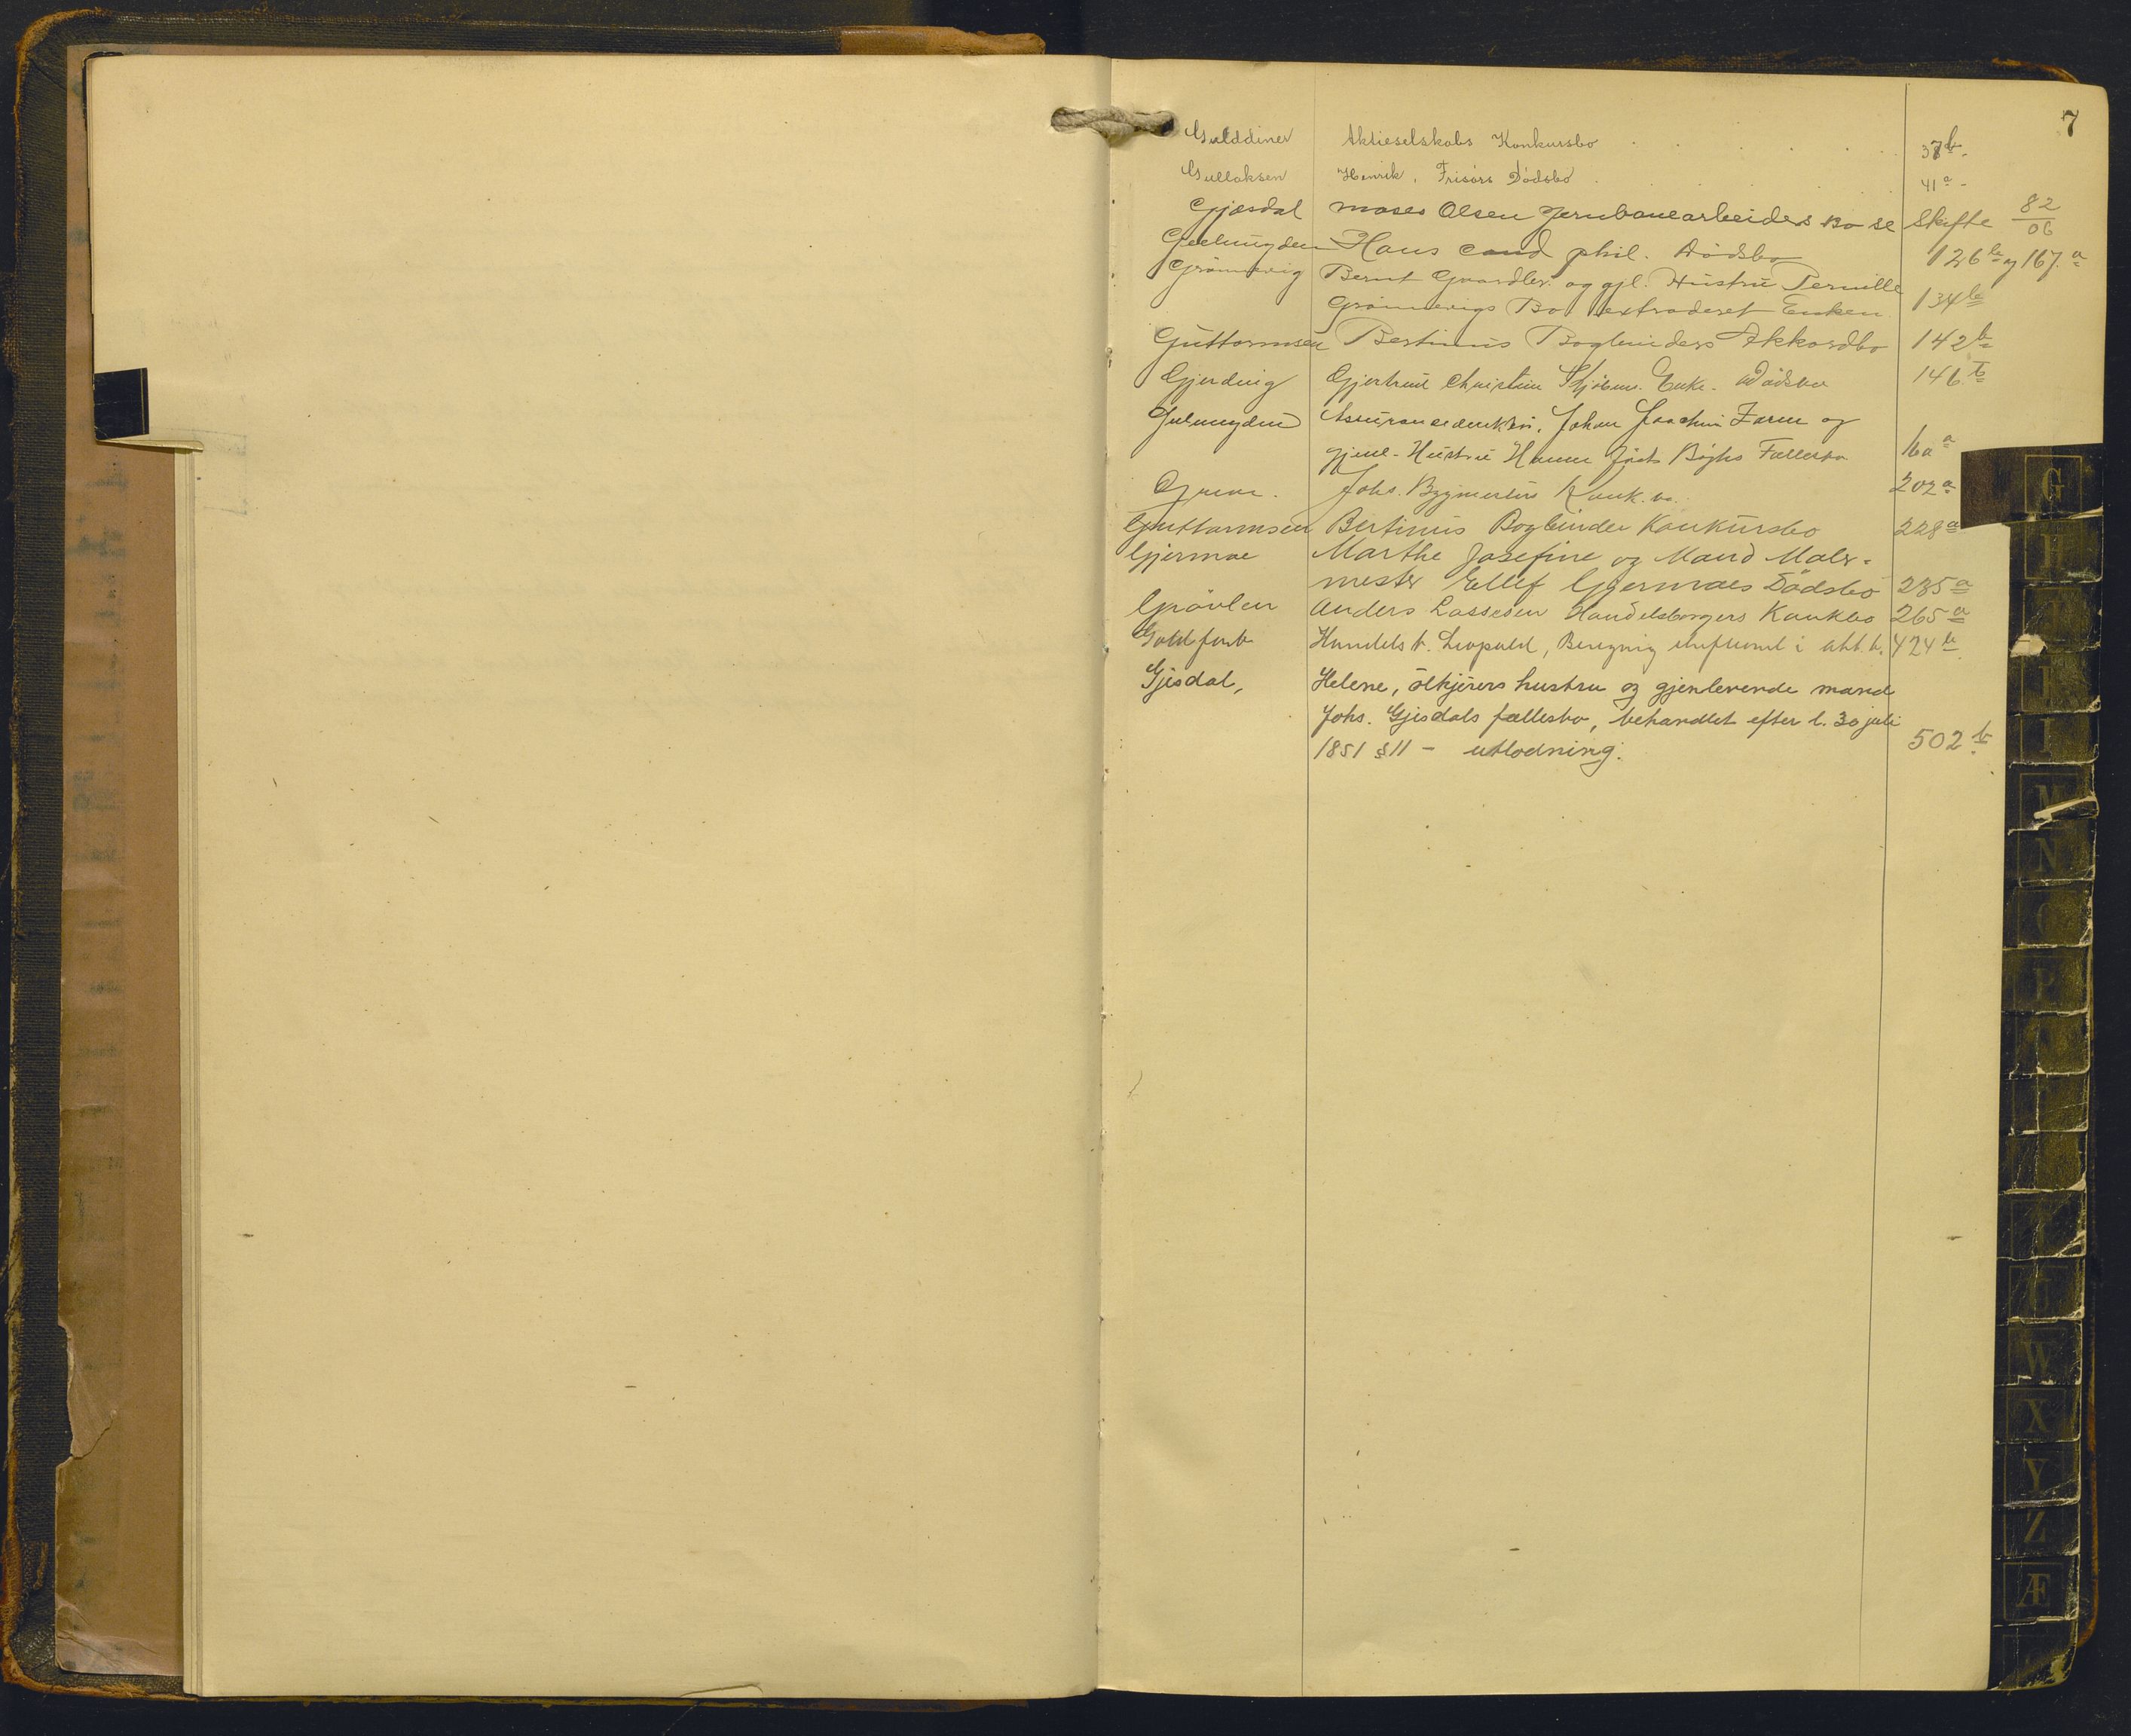 7
Gulddiner Aktieselskabs Konkursbo . . . . . 37b
Gullaksen Henrik, Frisørs Dødsbo . . . . . 41a
Gjæsdal Moses Olsen Jernbanearbeiders Bo se Skifte 82/06
Geelmuyden Hans cand phil. Dødsbo 126b og 167a
Grønnevig Bernt Gaardbr. og gjl. Hustru Pernille
Grønnevigs Bo extraderet Enken 134b
Guttormsen Bertinus Bogbinders Akkordbo 142b
Gjerding Gjertrud Christine Enke. Dødsbo 146b
Gelmuyden Johan Joachim og
gjenl. Hustru Hanne Fællesbo 160a
Johs. Bygmesters Konk.bo. 202a
Guttormsen Bertinus Bogbinder Konkursbo 228a
Gjermoe Marthe Josefine og Mand Maler-
mester Ellef Gjermoes Dødsbo 235a
Anders Lassesen Handelsborgers Konkbo 265a
Goldfarb Handelsb. Leopold, i akk.b. 424b
Gjesdal, Helene, ølkjørers hustru og gjenlevende mand
Johs. Gjesdals fællesbo, behandlet efter l. 30 juli
1851 §11 – utlodning. 502b
G
H
M
N
W
X
Y
Z
Æ